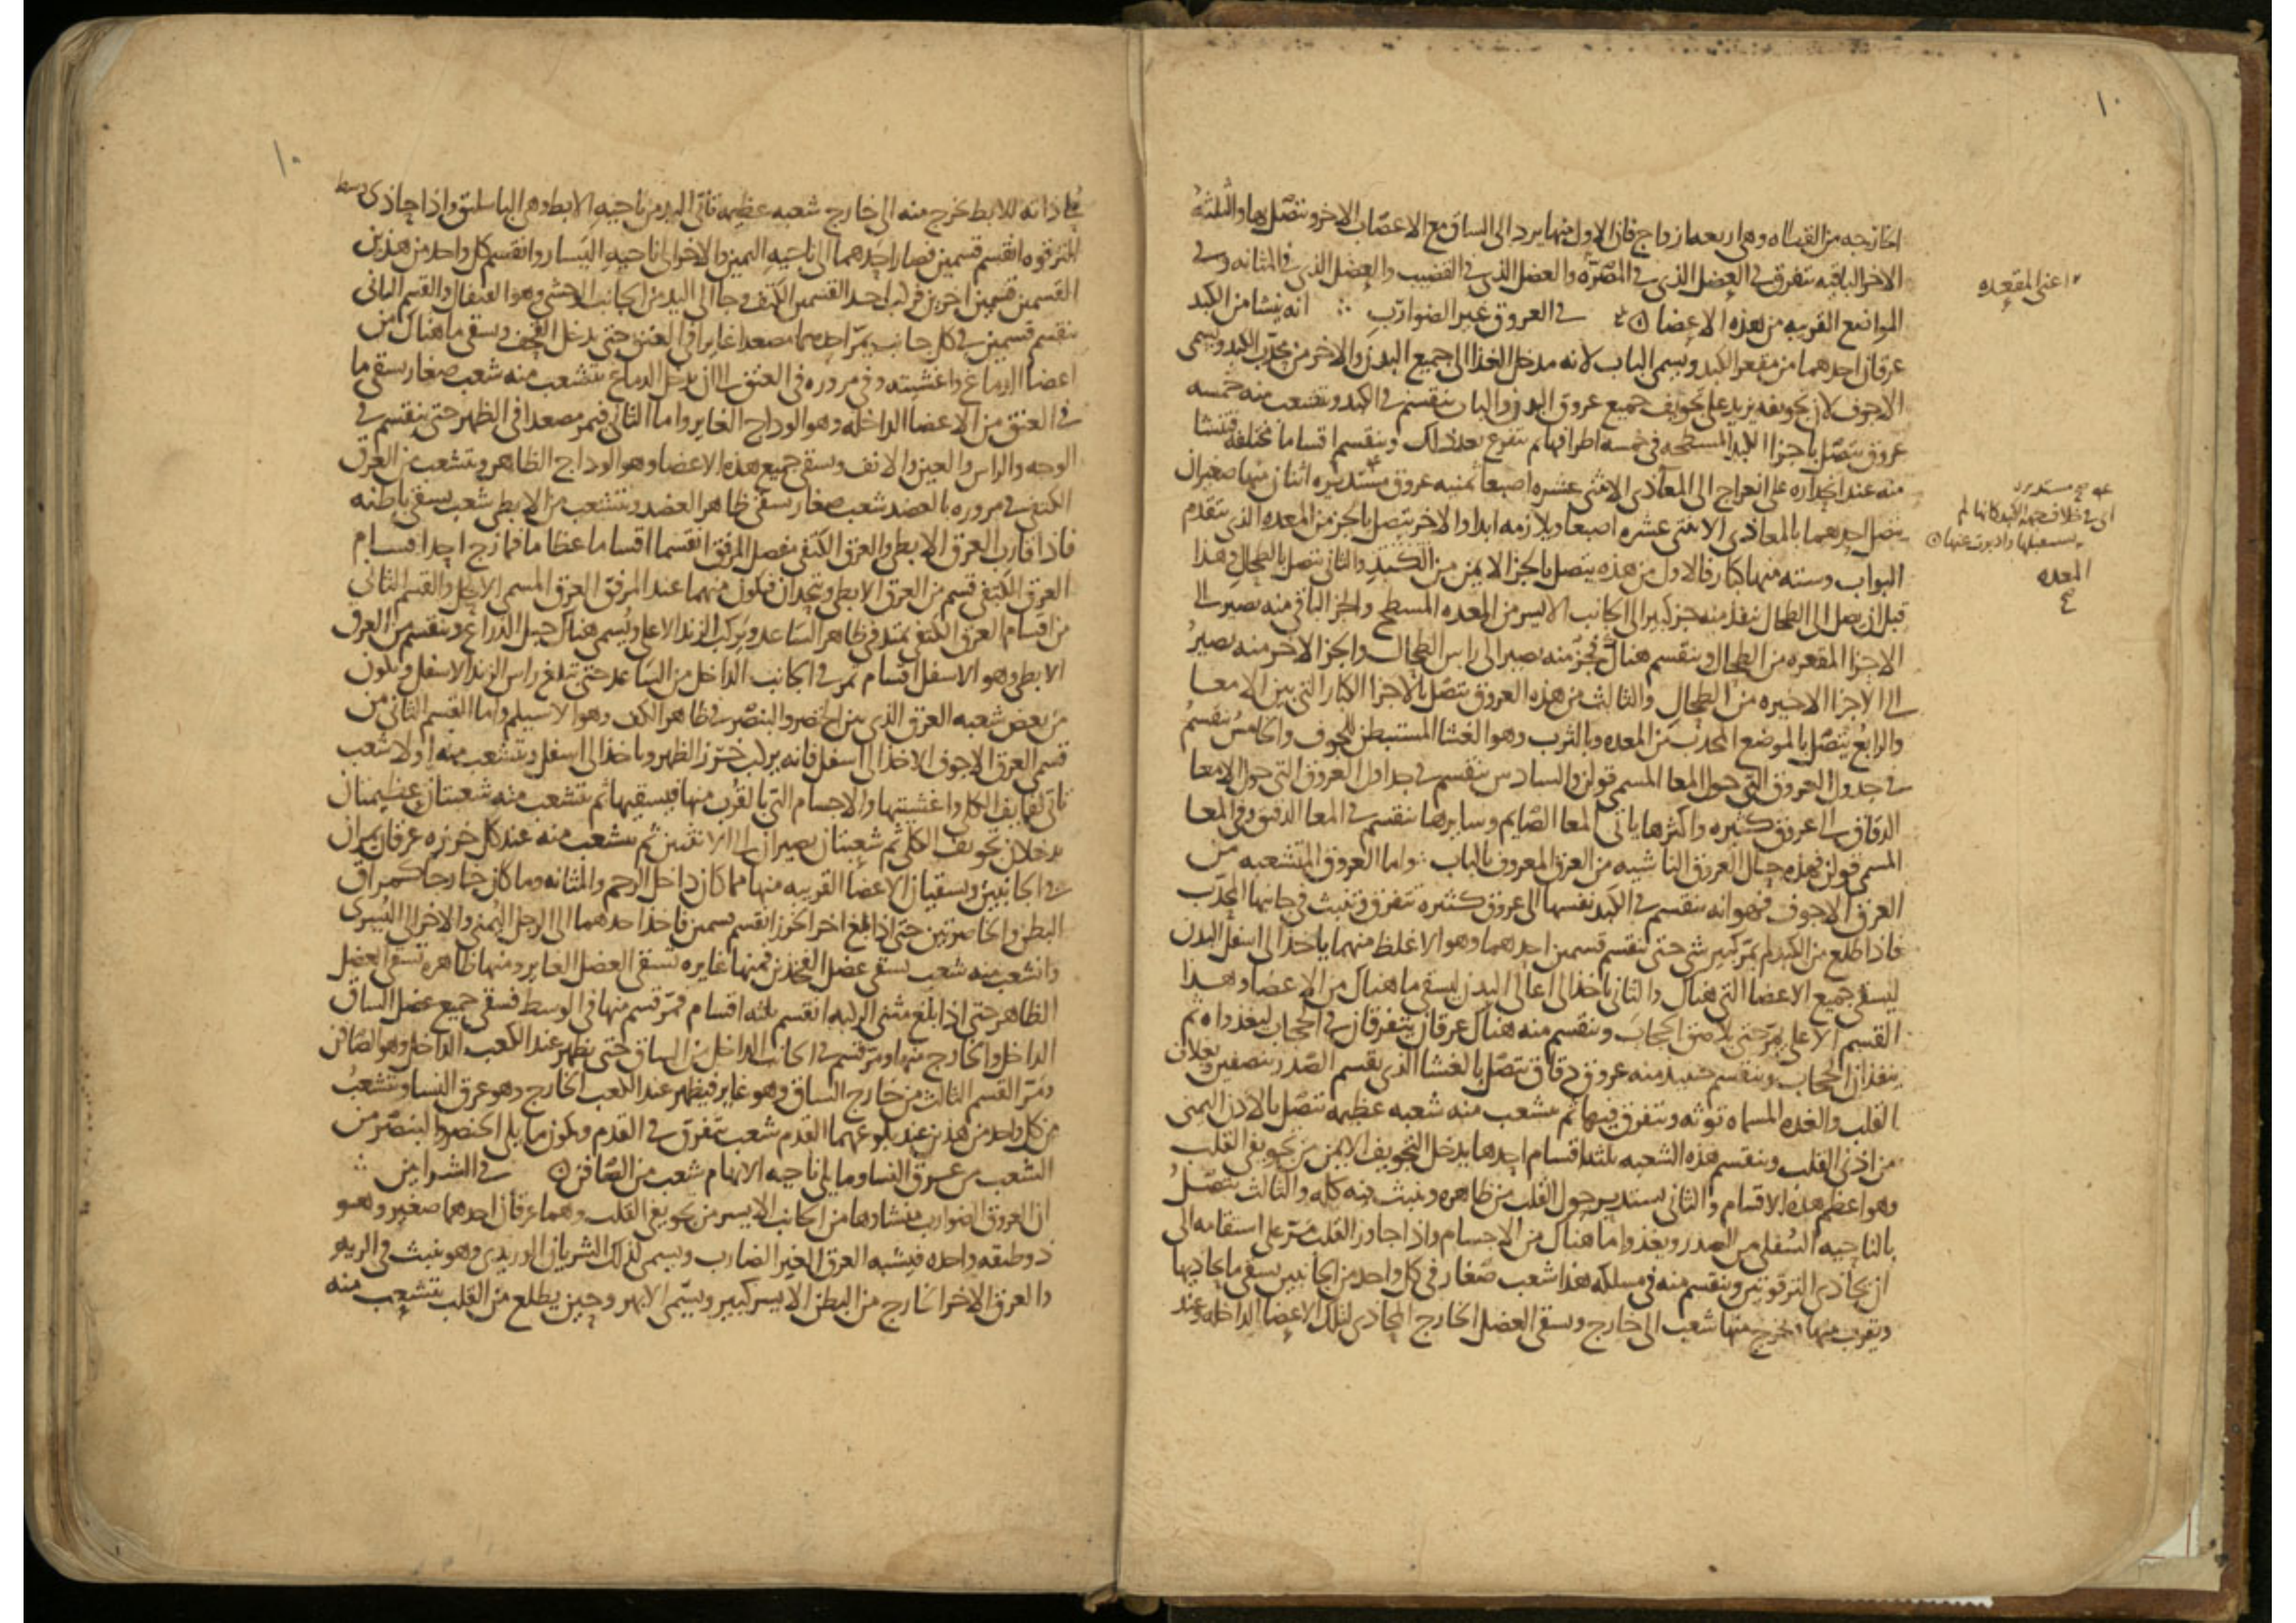 الخارجه من القطاه وهى اربعه ازواج فان الاول منها يرد الى الساق مع الاعصاب الاخر ويتصل بها والثلثه
الاخر الباقيه تتفرق فى العضل الذى فى المقعده والعضل الذى فى القضيب والعضل الذى فى المثانه وفى
المواضع القريبه من هذه الاعضا فى العروق غير الضوارب انه ينشا من الكبد
عرقان احدهما من مقعر الكبد ويسمى الباب لانه مدخل الغذا الى جميع البدن والاخر من محدب الكبد ويسمى
الاجوف لان تجويفه يزيد على تجويف جميع عروق البدن والباب ينقسم فى الكبد وتتشعب منه خمسه
عروق يتصل باجزا الكبد المسطحه فى خمسه اطرافها ثم تتفرع بعد ذلك وينقسم اقساما مختلفه فتنشا
منه عند انحداره على انعراج الى المعا ذى الاثنى عشره اصبعا ثمنيه عروق مستديره اثنان منها صغيران
يتصل احدهما بالمعا ذى الاثنى عشره اصبعا ويلازمه ابدا والاخر يتصل بالجز من المعده الذى يتقدم
البواب وسته منها كبار فالاول من هذه يتصل بالجز الايمن من الكبد والثانى يتصل بالطحال وهذا
قبل ان يصل الى الطحال ينفذ منه جز كبير الى الجانب الايسر من المعده المسطح والجز الباقى منه يصير الى
الاجزا المقعره من الطحال وينقسم هناك فجز منه يصير الى راس الطحال والجز الاخر منه يصير
الى الاجزا الاخيره من الطحال والثالث من هذه العروق يتصل بالاجزا الكبار التى بين الامعا
والرابع يتصل بالموضع المحدب من المعده وبالثرب وهو الغشا المستبطن للجوف والخامس ينقسم
فى جدول العروق التى حول المعا المسمى قولن والسادس ينقسم فى جداول العروق التى حول الامعا
الدقاق الى عروق كثيره واكثرها ياتى المعا الصايم وسايرها ينقسم فى المعا الدقيق وفى المعا
المسمى قولن فهذه حال العروق الناشيه من العرق المعروف بالباب واما العروق المتشعبه من
العرق الاجوف فهو انه ينقسم فى الكبد نفسها الى عروق كثيره تتفرق وتنبث فى جانبها المحدب
فاذا طلع من الكبد لم يمر كبير شى حتى ينقسم قسمين احدهما وهو الاغلظ منهما ياخذ الى اسفل البدن
ليسقى جميع الاعضا التى هناك والثانى ياخذ الى اعالى البدن ليسقى ما هناك من الاعضا وهذا
القسم الاعلى يمر حتى يلاصق الحجاب وينقسم منه هناك عرقان يتفرقان فى الحجاب ليغذواه ثم
ينفذان الحجاب وينقسم منه عروق دقاق تتصل بالغشا الذى يقسم الصدر بنصفين وبغلاف
القلب والغده المسماه توثه وتتفرق فيها ثم يتشعب منه شعبه عظيمه تتصل بالاذن اليمنى
من اذنى القلب وينقسم هذه الشعبه بثلثه اقسام احدها يدخل التجويف الايمن من تجويفى القلب
وهو اعظم هذه الاقسام والثانى يستدير حول القلب من ظاهره وينبث فيه كله والثالث يتصل
بالناحيه السفلى من الصدر ويغذوا ما هناك من الاجسام واذا جاوز القلب مر على استقامه الى
ان يحاذى الترقوتين وينقسم منه فى مسلكه هذا شعب صغار فى كل واحد من الجانبين يسقى ما يحاذيها
ويقرب منها ويخرج منها شعب الى خارج ويسقى العضل الخارج المحاذى لتلك الاعضا الداخله وعند
اعنى المقعده
اى فى خلاف جهه الكبد كانها لم
المعده
١٠
محاذاته للابط تخرج منه الى خارج شعبه عظيمه تاتى اليد من ناحيه الابط وهى الباسليق واذا حاذى وسط
الترقوه انقسم قسمين فصار احدهما الى ناحيه اليمين والاخر الى ناحيه اليسار وانقسم كل واحد من هذين
القسمين قسمين اخرين فركب احد القسمين الكتف وجا الى اليد من الجانب الوحشى وهو القيفال والقسم الثانى
ينقسم قسمين فى كل جانب يمر احدهما مصعدا غايرا فى العنق حتى يدخل القحف ويسقى ما هناك من
اعضا الدماغ واغشيته وفى مروره فى العنق الى ان يدخل الدماغ يتشعب منه شعب صغار يسقى ما
فى العنق من الاعضا الداخله وهو الوداج الغاير واما الثانى فيمر مصعدا فى الظهر حتى ينقسم فى
الوجه والراس والعين والانف ويسقى جميع هذه الاعضا وهو الوداج الظاهر ويتشعب من العرق
الكتفى فى مروره بالعضد شعب صغار يسقى ظاهر العضد ويتشعب من الابطى شعب يسقى باطنه
فاذا قارب العرق الابطى والعرق الكتفى مفصل المرفق انقسما اقساما عظاما فمازج احد اقسام
العرق الكتفى قسم من العرق الابطى ويتحدان فيكون منهما عند المرفق العرق المسمى الاكحل والقسم الثانى
من اقسام العرق الكتفى يمتد فى ظاهر الساعد ويركب الزند الاعلى ويسمى هناك حبل الذراع وينقسم من العرق
الابطى وهو الاسفل اقسام تمر فى الجانب الداخل من الساعد حتى تبلغ راس الزند الاسفل ويكون
من بعض شعبه العرق الذى بين الخنصر والبنصر فى ظاهر الكف وهو الاسيلم واما القسم الثانى من
قسمى العرق الاجوف الاخذ الى اسفل فانه يركب خرز الظهر وياخذ الى اسفل ويتشعب منه اولا شعب
تاتى لفايف الكلى واغشيتها والاجسام التى بالقرب منها فيسقيها ثم يتشعب منه شعبتان عظيمتان
يدخلان تجويف الكلى ثم شعبتان يصيران الى الانثيين ثم يتشعب منه عند كل خرزه عرقان يمران
فى الجانبين ويسقيان الاعضا القريبه منها مما كان داخل الرحم والمثانه وما كان خارجا كمراق
البطن والخاصرتين حتى اذا بلغ اخر الخرز انقسم قسمين فاخذ احدهما الى الرجل اليمنى والاخر الى اليسرى
وانشعب منه شعب يسقى عضل الفخذين فمنها غايره تسقى العضل الغاير ومنها ظاهره تسقى العضل
الظاهر حتى اذا بلغ مثنى الركبه انقسم بثلثه اقسام فمر قسم منها فى الوسط فسقى جميع عضل الساق
الداخل والخارج منها ومر قسم فى الجانب الداخل من الساق حتى يظهر عند الكعب الداخل وهو الصافن
ومر القسم الثالث من خارج الساق وهو غاير فيظهر عند الكعب الخارج وهو عرق النسا وتتشعب
من كل واحد من هذين عند بلوغهما القدم شعب تتفرق فى القدم ويكون ما يلى الخنصر والبنصر من
الشعب من عرق النسا وما يلى ناحيه الابهام شعب من الصافن فى الشرايين
ان العروق الضوارب منشاوها من الجانب الايسر من تجويفى القلب وهما عرقان احدهما صغير وهو
ذو طبقه واحده فيشبه العرق الغير الضارب ويسمى لذلك الشريان الوريدى وهو ينبث فى الريه
والعرق الاخر الخارج من البطن الايسر كبير ويسمى الابهر وحين يطلع من القلب يتشعب منه
١٠